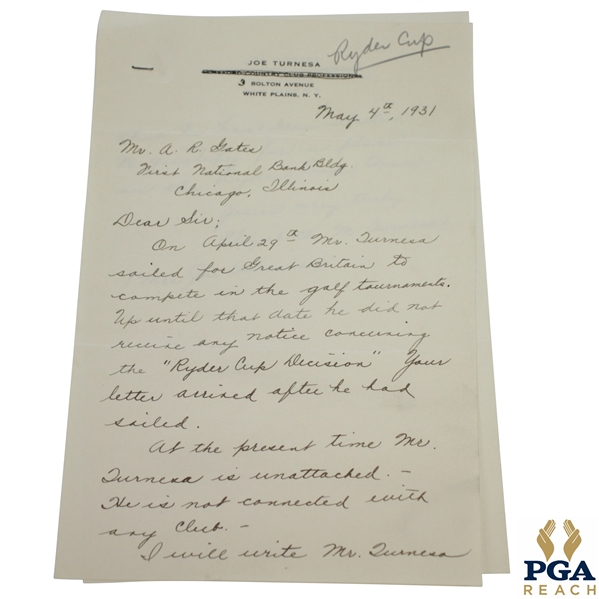 JOE TURNESA
Ryder Cup
COUNTRY CLUB PROFESSIONAL
3 BOLTON AVENUE
WHITE PLAINS, N. Y.
May 4th, 1931
Mr. A. R. Gates
First National Bank Bldg.
Chicago, Illinois
Dear Sir;
On April 29th Mr. Turnesa
sailed for Great Britain to
compete in the golf tournaments.
Up until that date he did not
receive any notice concerning
the "Ryder Cup Decision" Your
letter arrived after he had
sailed.
At the present time Mr.
Turnesa is unattached. –
He is not connected with
any Club. –
I will write Mr. Turnesa
PGA
REACH